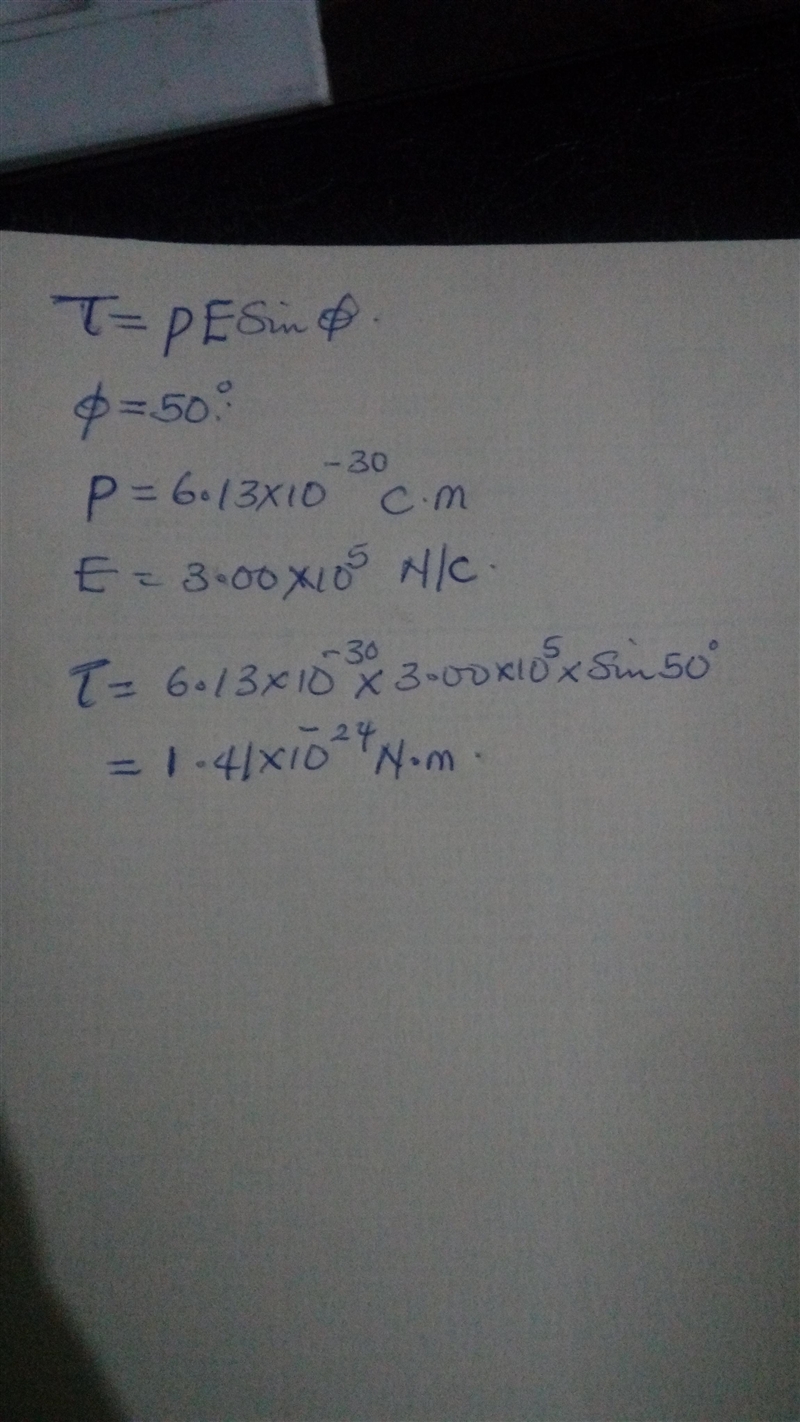 τ = pE Sin φ.
φ = 50°.
P = 6.13×10⁻³⁰ C.m
E = 3.00×10⁵ N/C.
τ = 6.13×10⁻³⁰ × 3.00×10⁵ × Sin 50°
= 1.41×10⁻²⁴ N.m.